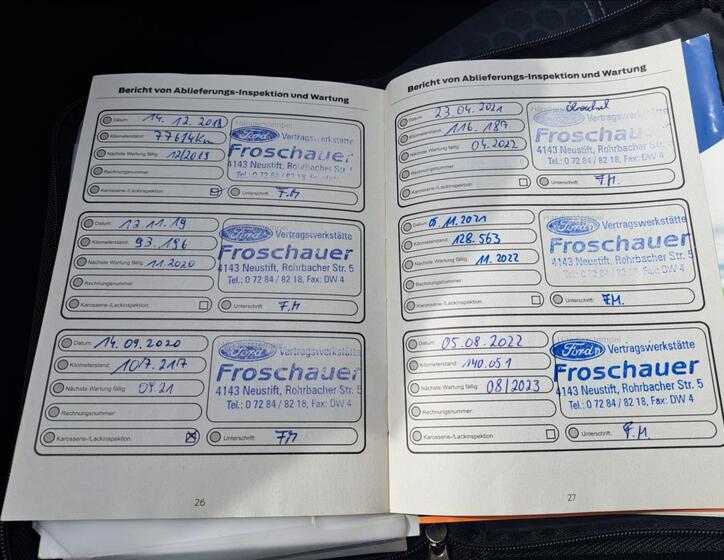 Bericht von Ablieferungs-Inspektion und Wartung
Datum: 14.12.2018
Kilometerstand: 77614Km
Nächste Wartung fällig: 12/2019
Rechnungsnummer:
Karosserie-/Lackinspektion:
Händlerstempel
Ford Vertragswerkstätte
Froschauer
4143 Neustift, Rohrbacher Str. 5
Tel.: 0 72 84 / 82 18, Fax: DW 4
Unterschrift: F.M
Datum: 11.19
Kilometerstand: 93.196
Nächste Wartung fällig: 11.2020
Rechnungsnummer:
Karosserie-/Lackinspektion:
Ford Vertragswerkstätte
Froschauer
4143 Neustift, Rohrbacher Str. 5
Tel.: 0 72 84 / 82 18, Fax: DW 4
Unterschrift: F.M
Datum: 14.09.2020
Kilometerstand: 107.217
Nächste Wartung fällig: 09.21
Rechnungsnummer:
Karosserie-/Lackinspektion:
Ford Vertragswerkstätte
Froschauer
4143 Neustift, Rohrbacher Str. 5
Tel.: 0 72 84 / 82 18, Fax: DW 4
Unterschrift: FM
26
Bericht von Ablieferungs-Inspektion und Wartung
Datum: 23.04.2021
Kilometerstand: 116.187
Nächste Wartung fällig: 04.2022
Rechnungsnummer:
Karosserie-/Lackinspektion:
Ford Vertragswerkstätte
Froschauer
4143 Neustift, Rohrbacher Str. 5
Tel.: 0 72 84 / 82 18, Fax: DW 4
Unterschrift: F.M.
Datum: 11.2021
Kilometerstand: 128.563
Nächste Wartung fällig: 11.2022
Rechnungsnummer:
Karosserie-/Lackinspektion:
Ford Vertragswerkstätte
Froschauer
4143 Neustift, Rohrbacher Str. 5
Tel.: 0 72 84 / 82 18, Fax: DW 4
Unterschrift: F.M.
Datum: 05.08.2022
Kilometerstand: 140.051
Nächste Wartung fällig: 08/2023
Rechnungsnummer:
Karosserie-/Lackinspektion:
Ford Vertragswerkstätte
Froschauer
4143 Neustift, Rohrbacher Str. 5
Tel.: 0 72 84 / 82 18, Fax: DW 4
Unterschrift: F.M.
27